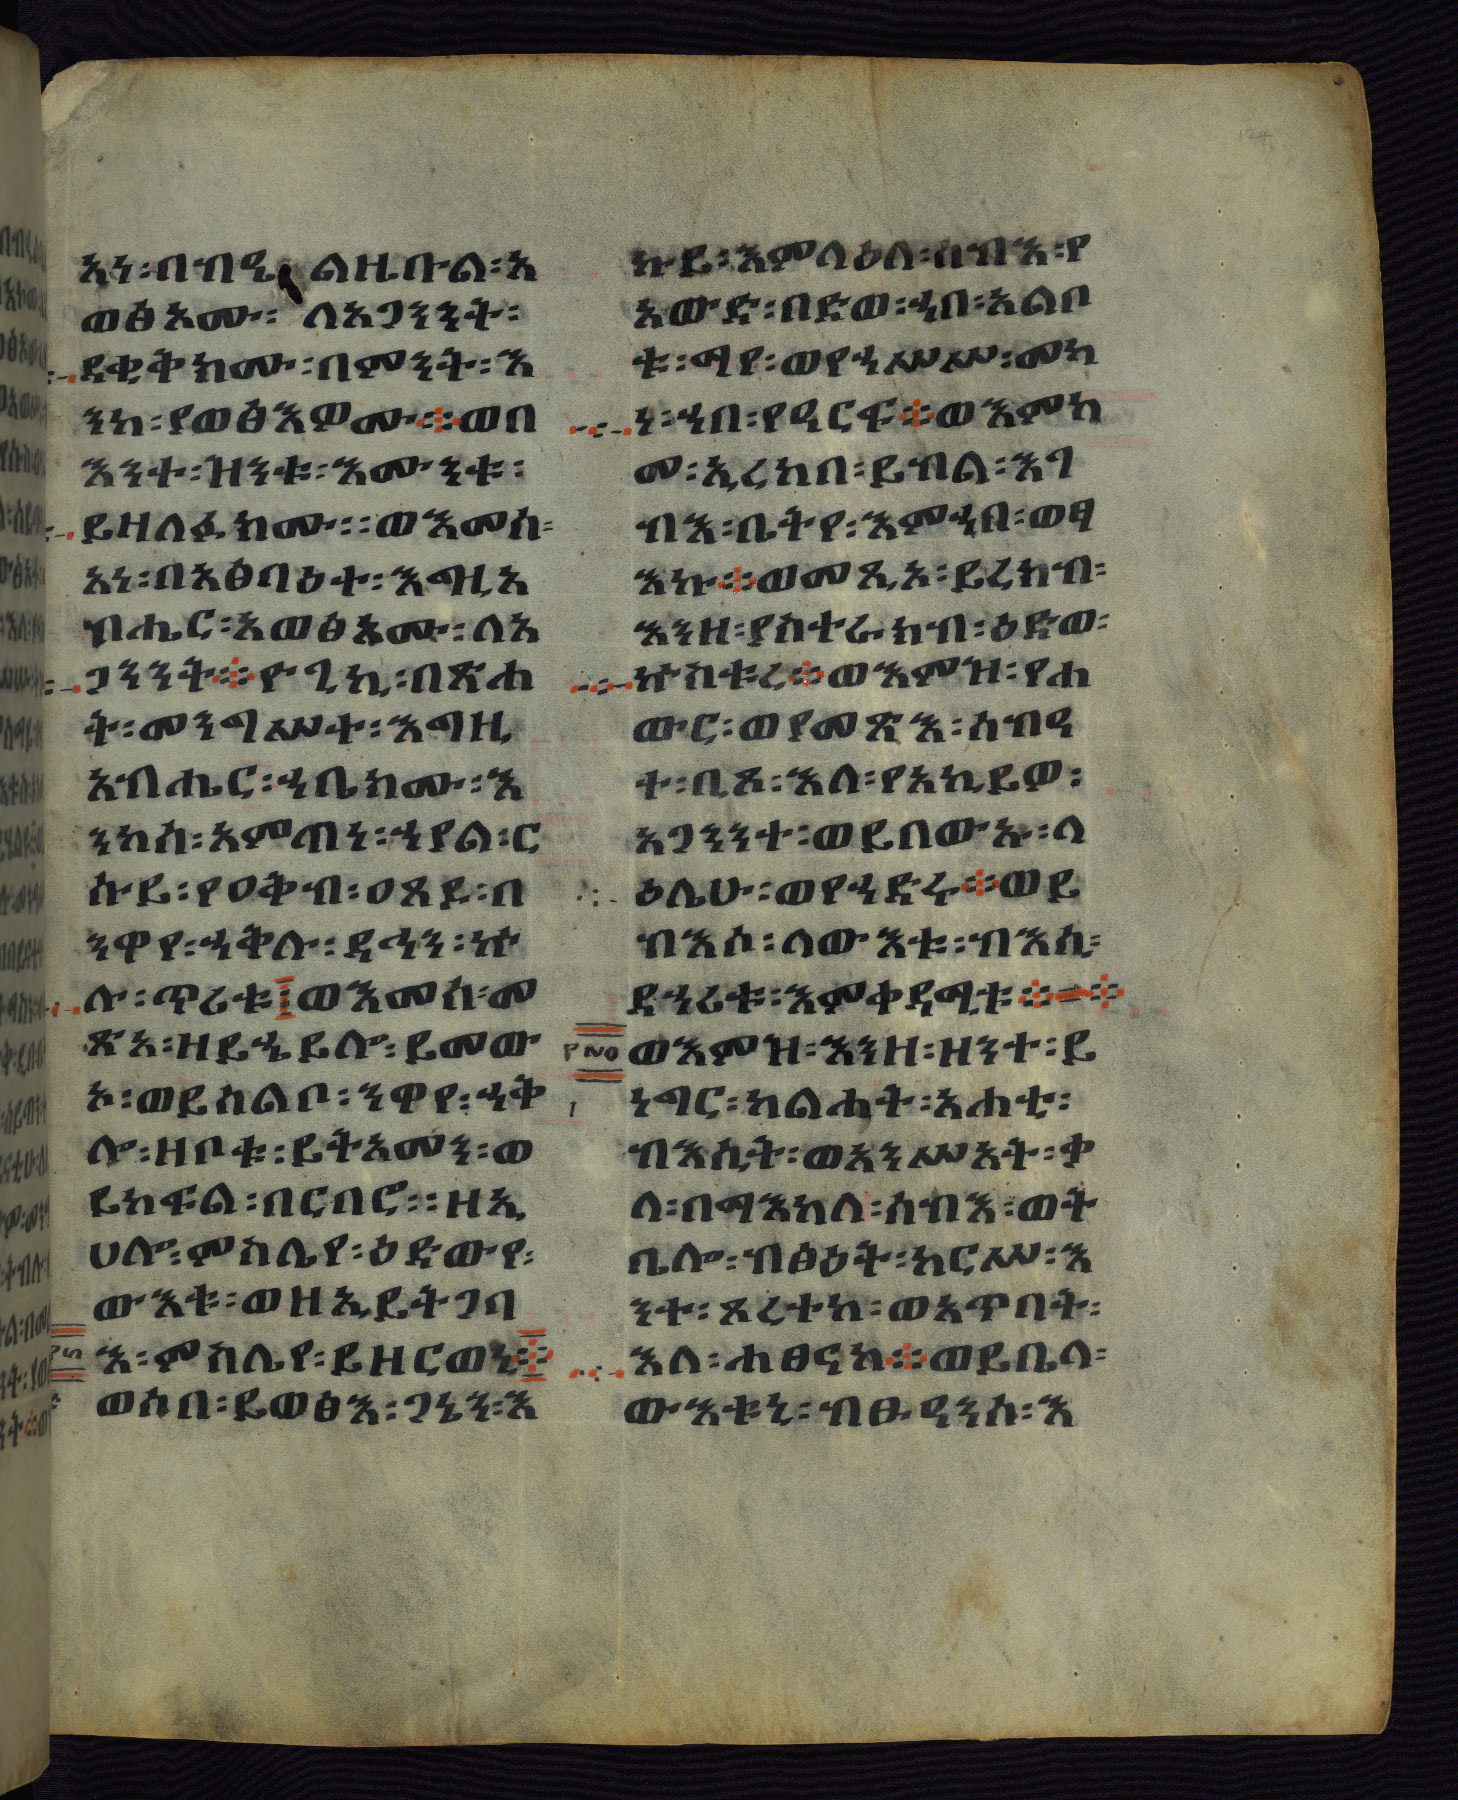 አነ፡በብዔልዜቡል፡አ
ወፅአሙ፡ለአጋንንት፡
ደቂቅክሙ፡በምንት፡እ
ንከ፡ያወፅእዎሙ፨ወበ
እንተ፡ዝንቱ፡እሙንቱ፡
ይዘለፉክሙ፡፡ወእመሰ፡
አነ፡በአፅባዕተ፡እግዚአ
ብሔር፡አወፅአሙ፡ለአ
ጋንንት፨ዮጊኬ፡በጽሐ
ት፡መንግሥተ፡እግዚ
አብሔር፡ኀቤክሙ፡እ
ንከሰ፡አምጣነ፡ኀያል፡ር
ሱይ፡የዐቅብ፡ዐጸደ፡በ
ንዋየ፡ሐቅሉ፡ደኅን፡ኵ
ሉ፡ጥሪቱ፡ወእመሰ፡መ
ጽአ፡ዘይኄይሎ፡ይመው
ኦ፡ወይሰልቦ፡ንዋየ፡ሐቅ
ሎ፡ዘቦቱ፡ይትአመን፡ወ
ይከፍል፡በርበሮ፡፡ዘኢ
ሀሎ፡ምስሌየ፡ዕድውየ፡
ውእቱ፡ወዘኢይትጋባ
እ፡ምስሌየ፡ይዘርወኒ፨
ወሶበ፡ይወፅእ፡ጋኔን፡እ
ኩይ፡እምላዕለ፡ሰብእ፡የ
አውድ፡በድወ፡ኀበ፡አልቦ
ቱ፡ማየ፡ወየኀሥሥ፡መካ
ነ፡ኀበ፡የዓርፍ፨ወእምከ
መ፡ኢረከበ፡ይብል፡እገ
ብእ፡ቤትየ፡እምኀበ፡ወፃ
እኩ፨ወመጺኦ፡ይረክብ፡
እንዘ፡ያስተራክብ፡ዕድወ፡
ኵስቱረ፨ወእምዝ፡የሐ
ውር፡ወያመጽእ፡ሰብዓ
ተ፡ቢጾ፡እለ፡የአኪይዎ፡
አጋንንተ፡ወይበውኡ፡ላ
ዕሌሁ፡ወየኀድሩ፨ወይ
ብእሶ፡ለውእቱ፡ብእሲ፡
ደኃሪቱ፡እምቀዳሚቱ፨
ወእምዝ፡እንዘ፡ዘንተ፡ይ
ነግር፡ከልሐት፡አሐቲ፡
ብእሲት፡ወአንሥአት፡ቃ
ላ፡በማእከለ፡ሰብእ፡ወት
ቤሎ፡ብፅዕት፡ከርሥ፡እ
ንተ፡ጾረተከ፡ወአጥባት፡
እለ፡ሐፀናከ፨ወይቤላ፡
ውእቱኒ፡ብፁዓንሰ፡እ